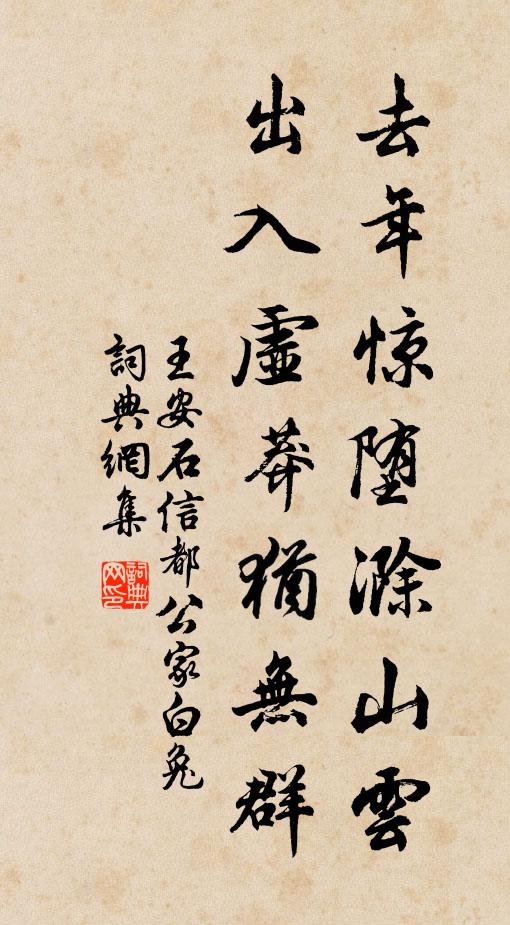 去年惊堕滁山雲
出入虛莽猶無群
王安石信都公家白兔
詞典網集
詞典网印